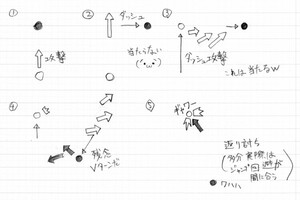 ①
攻撃
②
ダッシュ
当たらない
(´・ω・`)
③
ダッシュ攻撃
これは当たるw
④
残念
Vターンだ
⑤
ギャワー
返り討ち
(多分実際は
ジャンプ回避が
間に合う)
ワハハ